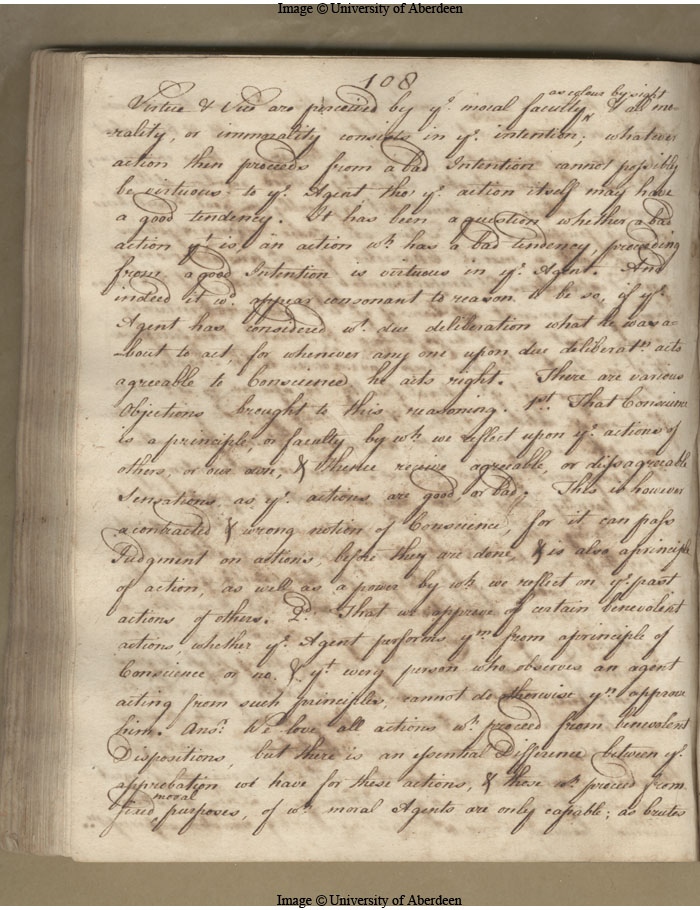 Image © University of Aberdeen
108
as colour by sight
Virtue & Vice are perceived by yͤ moral faculty ^ & all mo-
-rality, or immorality consists in yͤ intention; whatever
action then proceeds from a bad Intention cannot possibly
be virtuous to yͤ Agent tho yͤ action itself may have
a good tendency. It has been a question whether a bad
action yͭ is an action wͪ has a bad tendency, proceeding
from a good Intention is virtuous in yͤ Agent. And
indeed it wͩ appear consonant to reason to be so, if yͤ
Agent has considered wͭ due deliberation what he was a-
-bout to act, for whenever any one upon due deliberatⁿ acts
agreeable to Conscience he acts right. There are various
Objections brought to this reasoning. 1st. That Conscience
is a principle, or faculty by wͪ we reflect upon yͤ actions of
others or our own, & thence receive agreable, or dissagreable
Sensations as yͤ actions are good or bad. This is however
a contracted & wrong notion of Conscience, for it can pass
Judgment on actions, before they are done, & is also a principle
of action, as well as a power by wͪ we reflect on yͤ past
actions of others. 2ͩ. That we approve of certain benevolent
actions whether yͤ Agent performs yͫ from a principle of
Conscience or no. & yͭ every person who observes an agent
acting from such principles, cannot do otherwise yⁿ approve
him. Ansͬ. We love all actions wͪ proceed from benevolent
Dispositions, but there is an essential Difference between yͤ
approbation we have for these actions, & these wͪ proceed from
moral
fixed ^ purposes, of wͪ moral Agents are only capable; as brutes
Image © University of Aberdeen